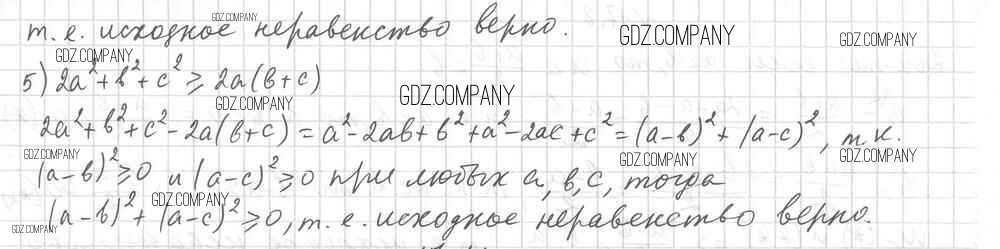 GDZ.COMPANY
т.е. исходное неравенство верно.
GDZ.COMPANY GDZ.COMPANY
GDZ.COMPANY
5) 2a²+b²+c² ⩾ 2a(b+c)
GDZ.COMPANY GDZ.COMPANY
2a²+b²+c²-2a(b+c) = a²-2ab+b²+a²-2ac+c² = (a-b)²+(a-c)², т.к.
GDZ.COMPANY GDZ.COMPANY GDZ.COMPANY
(a-b)²⩾0 и (a-c)²⩾0 при любых a, b, c, тогда
GDZ.COMPANY
(a-b)²+(a-c)²⩾0, т.е. исходное неравенство верно.
GDZ.COMPANY